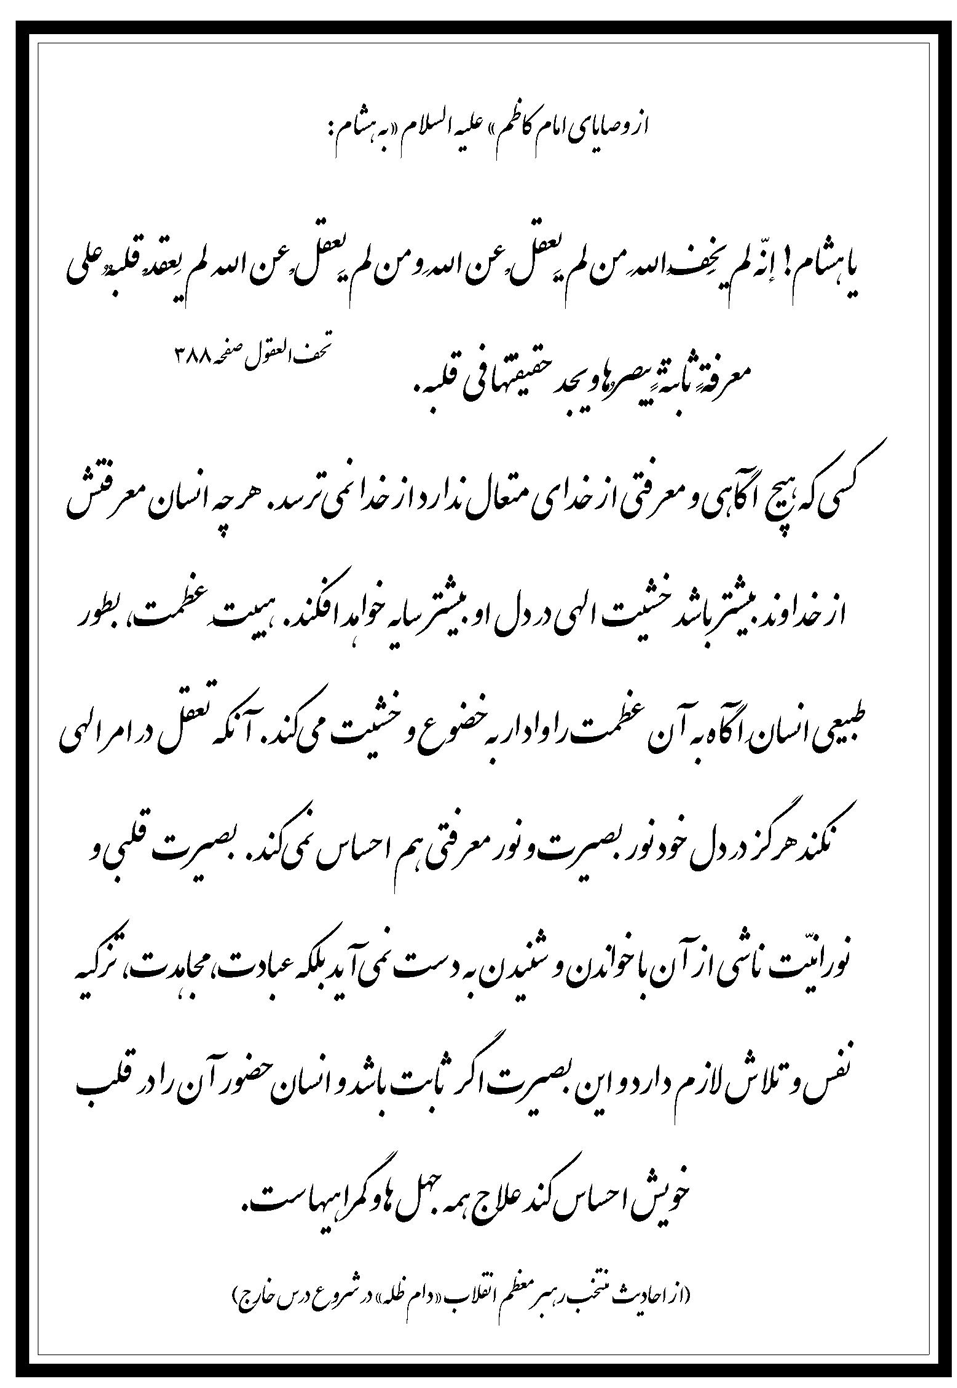 از وصایای امام کاظم» علیه السلام «به هشام:
یا هشام! إنّه لم یخِف الله من لم یعقل عن الله و من لم یعقل عن الله لم یعقد قلبهُ علی
معرفةٍ ثابتةٍ یبصرها و یجد حقیقتها فی قلبه.
تحف العقول صفحه ۳۸۸
کسی که هیچ آگاهی و معرفتی از خدای متعال ندارد از خدا نمی‌ترسد. هر چه انسان معرفتش
از خداوند بیشتر باشد خشیت الهی در دل او بیشتر سایه خواهد افکند. هیبت عظمت، بطور
طبیعی انسان آگاه به آن عظمت را وادار به خضوع و خشیت می‌کند. آنکه تعقل در امر الهی
نکند هرگز در دل خود نور بصیرت و نور معرفتی هم احساس نمی‌کند. بصیرت قلبی و
نورانیّت ناشی از آن با خواندن و شنیدن به دست نمی‌آید بلکه عبادت، مجاهدت، تزکیه
نفس و تلاش لازم دارد و این بصیرت اگر ثابت باشد و انسان حضور آن را در قلب
خویش احساس کند علاج همه جهل ها و گمراهیهاست.
(از احادیث منتخب رهبر معظم انقلاب «دام ظله» در شروع درس خارج)